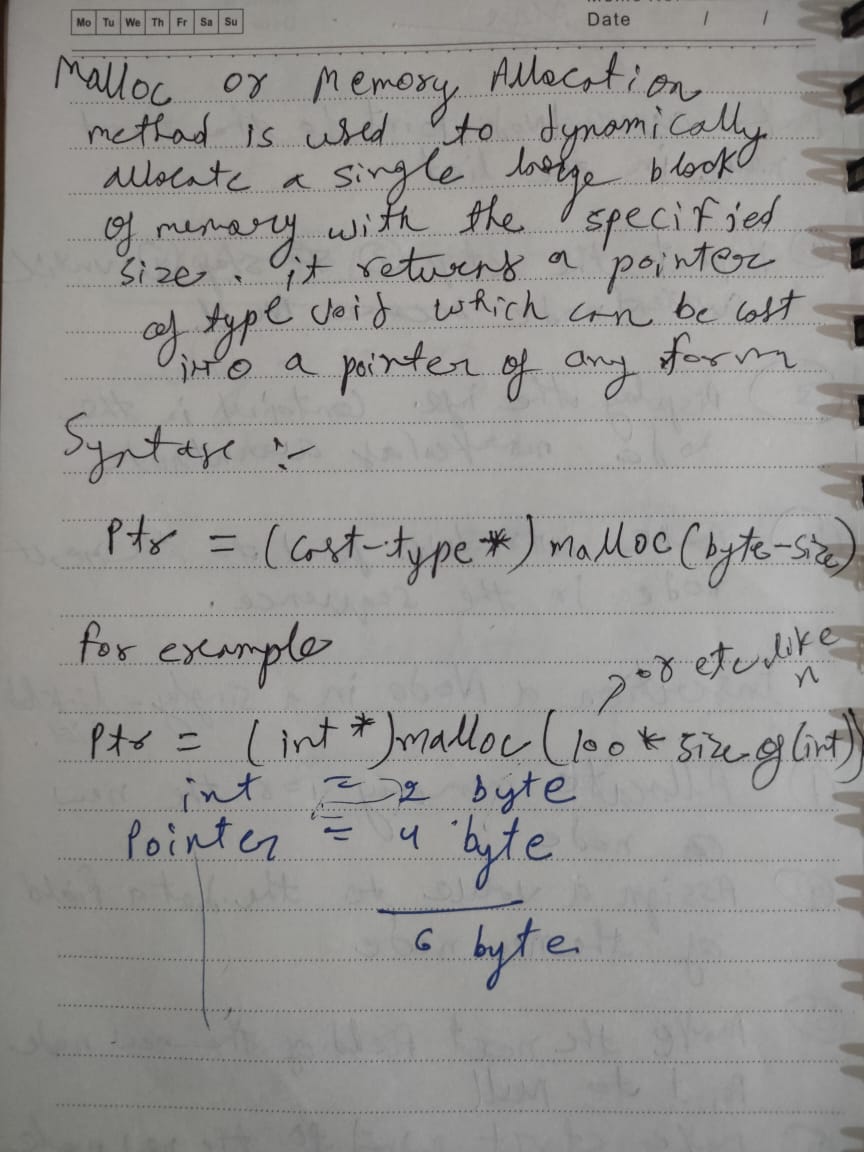 Mo Tu We Th Fr Sa Su
Date / /
Malloc or Memory Allocation
method is used to dynamically
allocate a single large block
of memory with the specified
size. it returns a pointer
of type void which can be cast
into a pointer of any form
Syntax :-
Ptr = (cast-type*) malloc(byte-size)
for example
or etc like
n
Ptr = (int *)malloc(100 * size of (int))
int = 2 byte
Pointer = 4 byte
6 byte